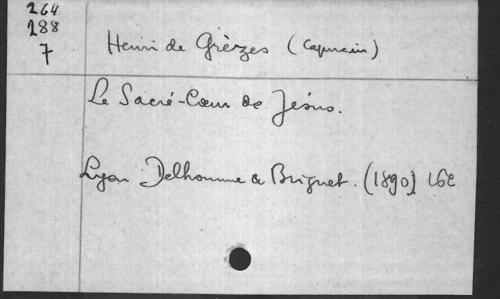 264
288
7
Henri de Grèzes (Capucin)
Le Sacré-Cœur de Jésus.
Lyon Delhomme & Briguet. (1890)